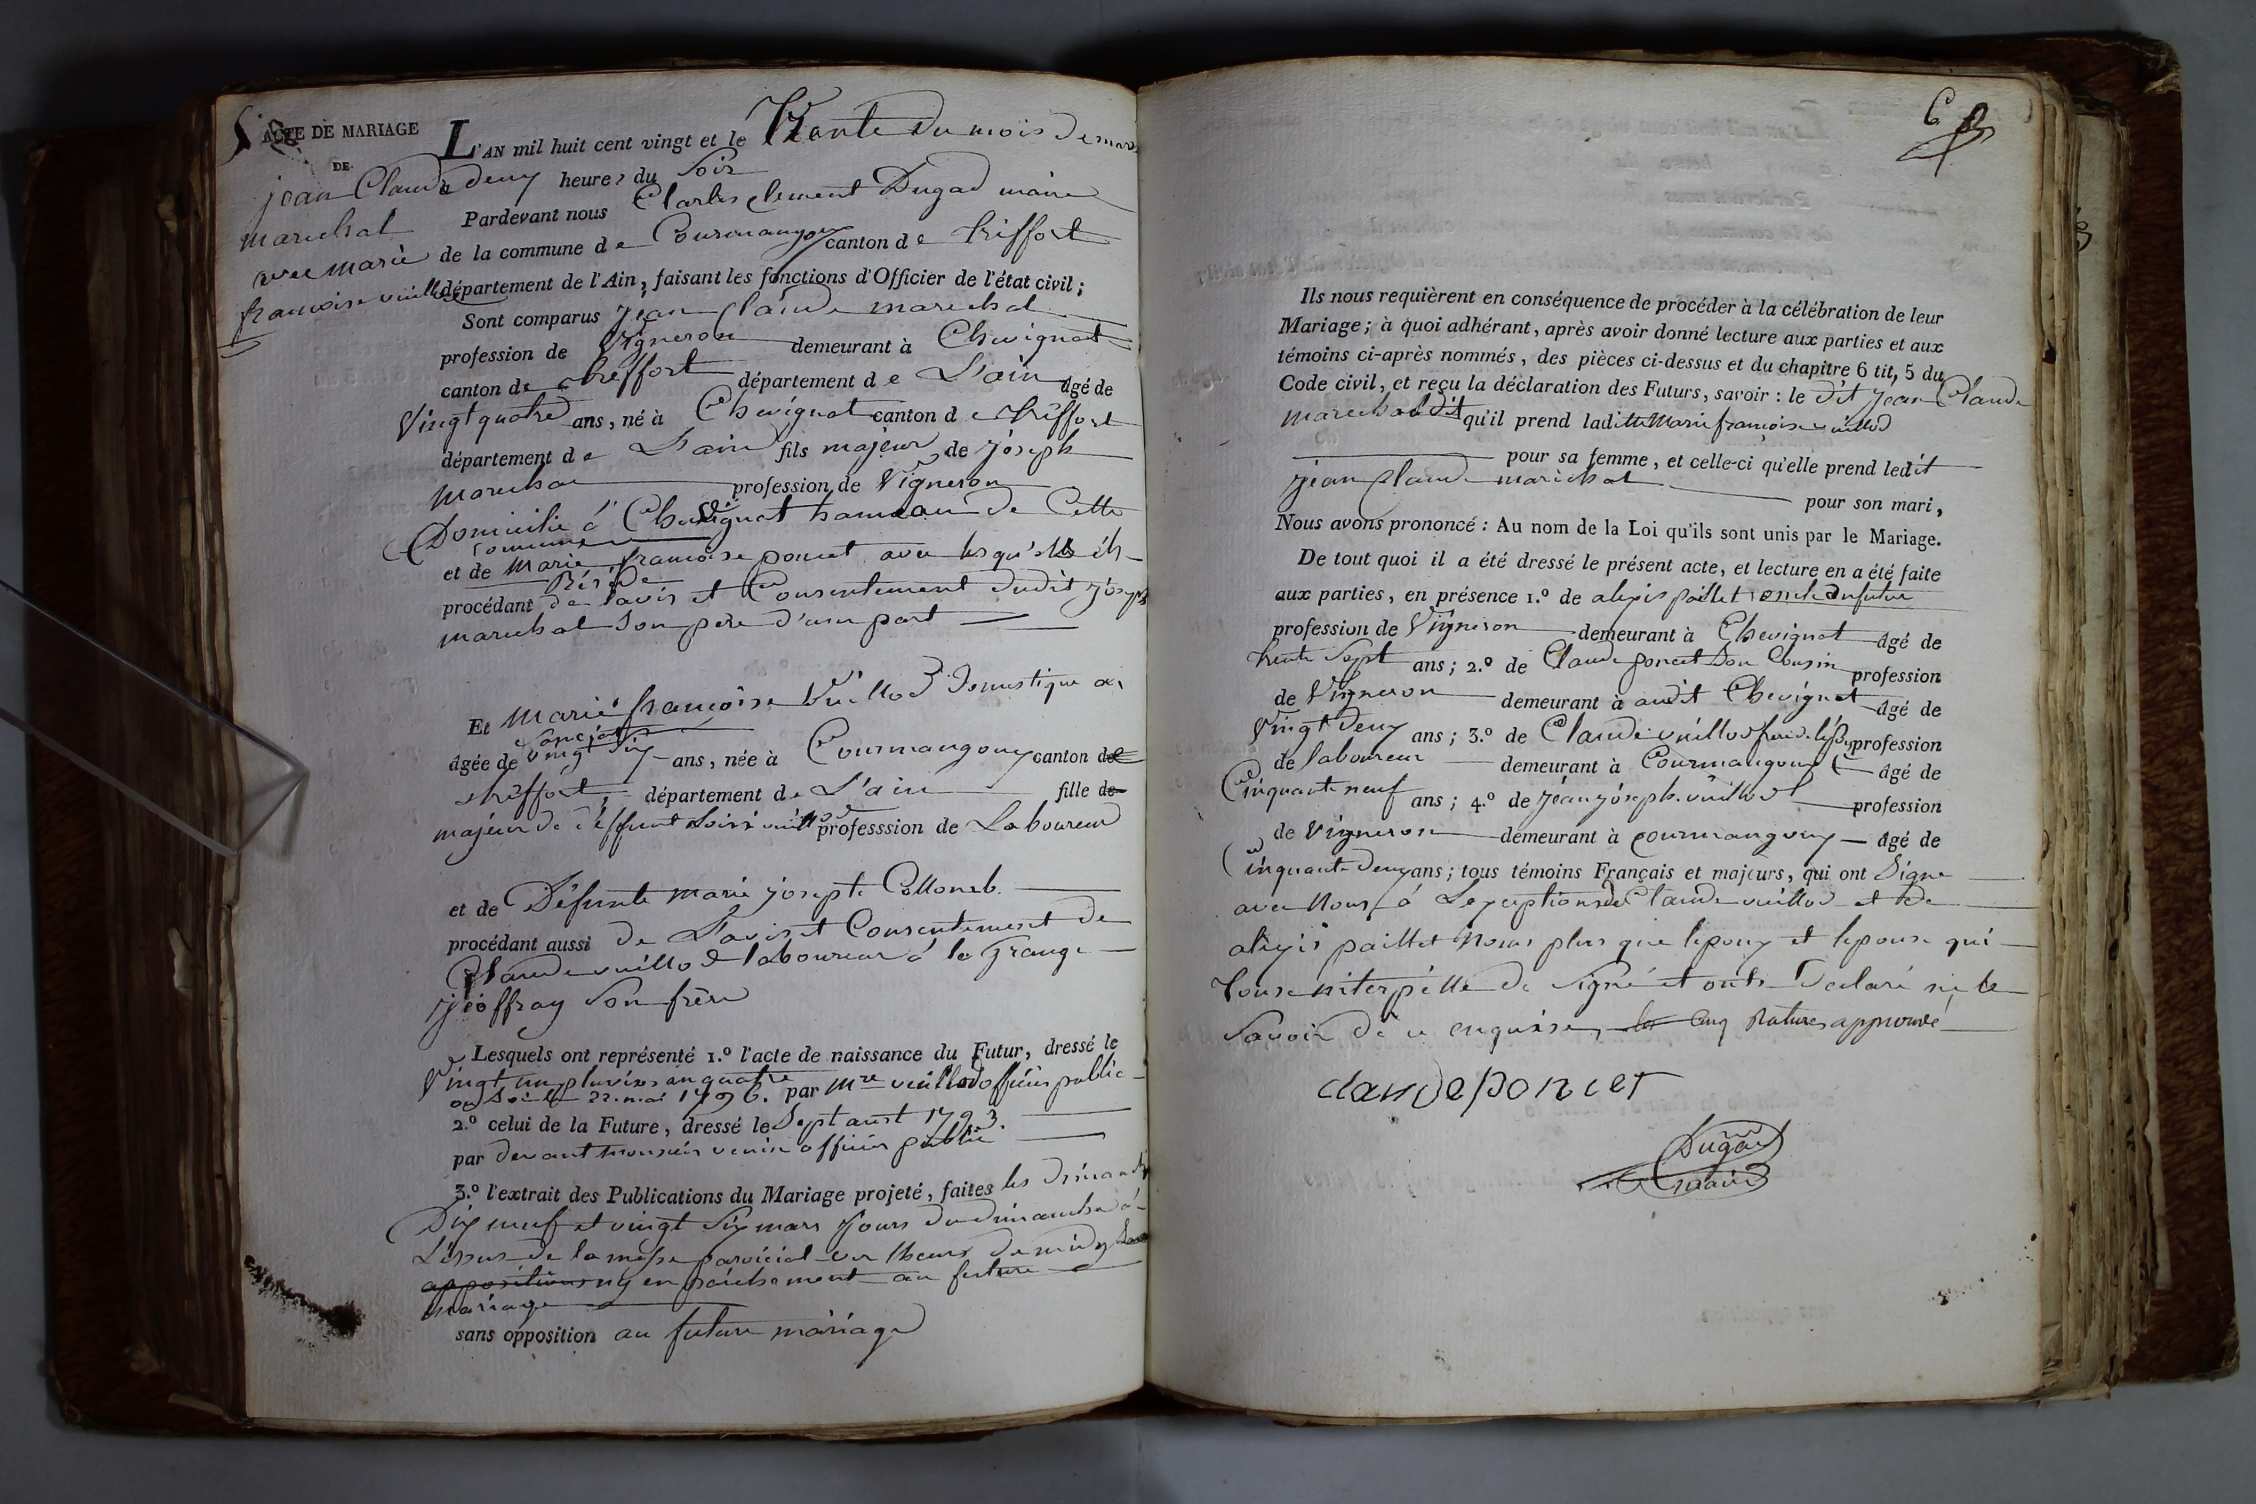 ACTE DE MARIAGE
DE
jean Claude
marechal
avec marie
francoise vuillod
L'AN mil huit cent vingt et le Trante du mois de mars
a deux heures du Soir
Pardevant nous Charles clement Dugad maire
de la commune de Courmangoux canton de treffort
département de l'Ain, faisant les fonctions d'Officier de l'état civil;
Sont comparus jean Claude marechal
profession de Vigneron demeurant à Chevignat
canton de treffort département de L'ain âgé de
Vingt quatre ans, né à Chevignat canton de treffort
département de L'ain fils majeur de joseph
marechal profession de Vigneron
Domicilié a Chevignat hameau de Cette
commune
et de marie francoise poncet avec lesqu'els il
Réside
procédant de l'avis et Consentement dudit joseph
marechal Son pere d'une part
Et marie françoise Vuillod Domestique a
Sanciat
âgée de vingt Six ans, née à Courmangoux canton de
treffort, département de L'ain fille de
majeur de deffunt vuillod professsion de Laboureur
et de Défunte marie joseph Collomb
procédant aussi de L'avis et Consentement de
Claude vuillod laboureur a la Grange
jéoffray Son frère
Lesquels ont représenté 1.º l'acte de naissance du Futur, dressé le
Vingt un pluviose an quatre par mre vuillod officier public
ou Soit 22. mai 1796.
2.º celui de la Future, dressé le Sept aust 1793.
par devant monsieur officier public
3.º l'extrait des Publications du Mariage projeté, faites les Dimanche
Dix neuf et vingt Six mars jours de dimanche à
L'issus de la messe paroicial ver lheure de midy Sans
oppositions ny en paichement au future
mariage
sans opposition au future mariage
6
Ils nous requièrent en conséquence de procéder à la célébration de leur
Mariage; à quoi adhérant, après avoir donné lecture aux parties et aux
témoins ci-après nommés, des pièces ci-dessus et du chapitre 6 tit, 5 du
Code civil, et reçu la déclaration des Futurs, savoir: le dit jean Claude
marechal dit qu'il prend laditte Marie françoise vuillod
pour sa femme, et celle-ci qu'elle prend ledit
jean Claude marechal pour son mari,
Nous avons prononcé: Au nom de la Loi qu'ils sont unis par le Mariage.
De tout quoi il a été dressé le présent acte, et lecture en a été faite
aux parties, en présence 1.º de alexis paillet oncle du futur
profession de Vigneron demeurant à Chevignat âgé de
trente Sept ans; 2.º de Claude poncet Son Cousin profession
de Vigneron demeurant à audit Chevignat âgé de
Vingt deux ans; 3.º de Claude vuillod frere de l'épouse profession
de laboureur demeurant à Courmangoux âgé de
Cinquante neuf ans; 4.º de jean joseph vuillod profession
de vigneron demeurant à courmangoux âgé de
Cinquante deux ans; tous témoins Français et majeurs, qui ont Signe
avec Nous a L'exception de Claude vuillod et de
alexis paillet Nomas plus que lepoux et lepouse qui
tous interpellé de Signé et onts Declaré ne le
Savoir de ce enquise, les Cinq Ratures approuvé
claude poncet
Dugad
maire